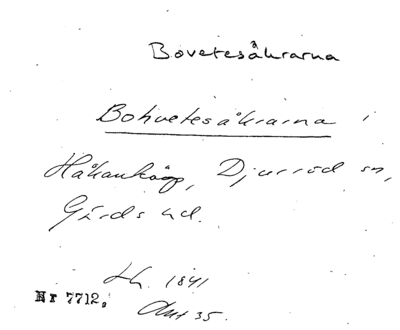 Bovetesåkrarna
Bohvetesåkrarna i
Håkanköp, Djurröd sn,
Gärds hd.
Lh. 1841
Nr 7712.
Akt 35.